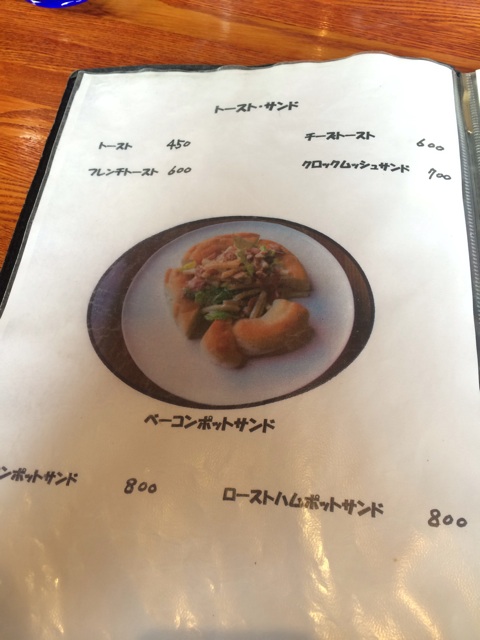 トースト・サンド
トースト 450 チーストースト 600
フレンチトースト 600 クロックムッシュサンド 700
ベーコンポットサンド
ンポットサンド 800 ローストハムポットサンド 800